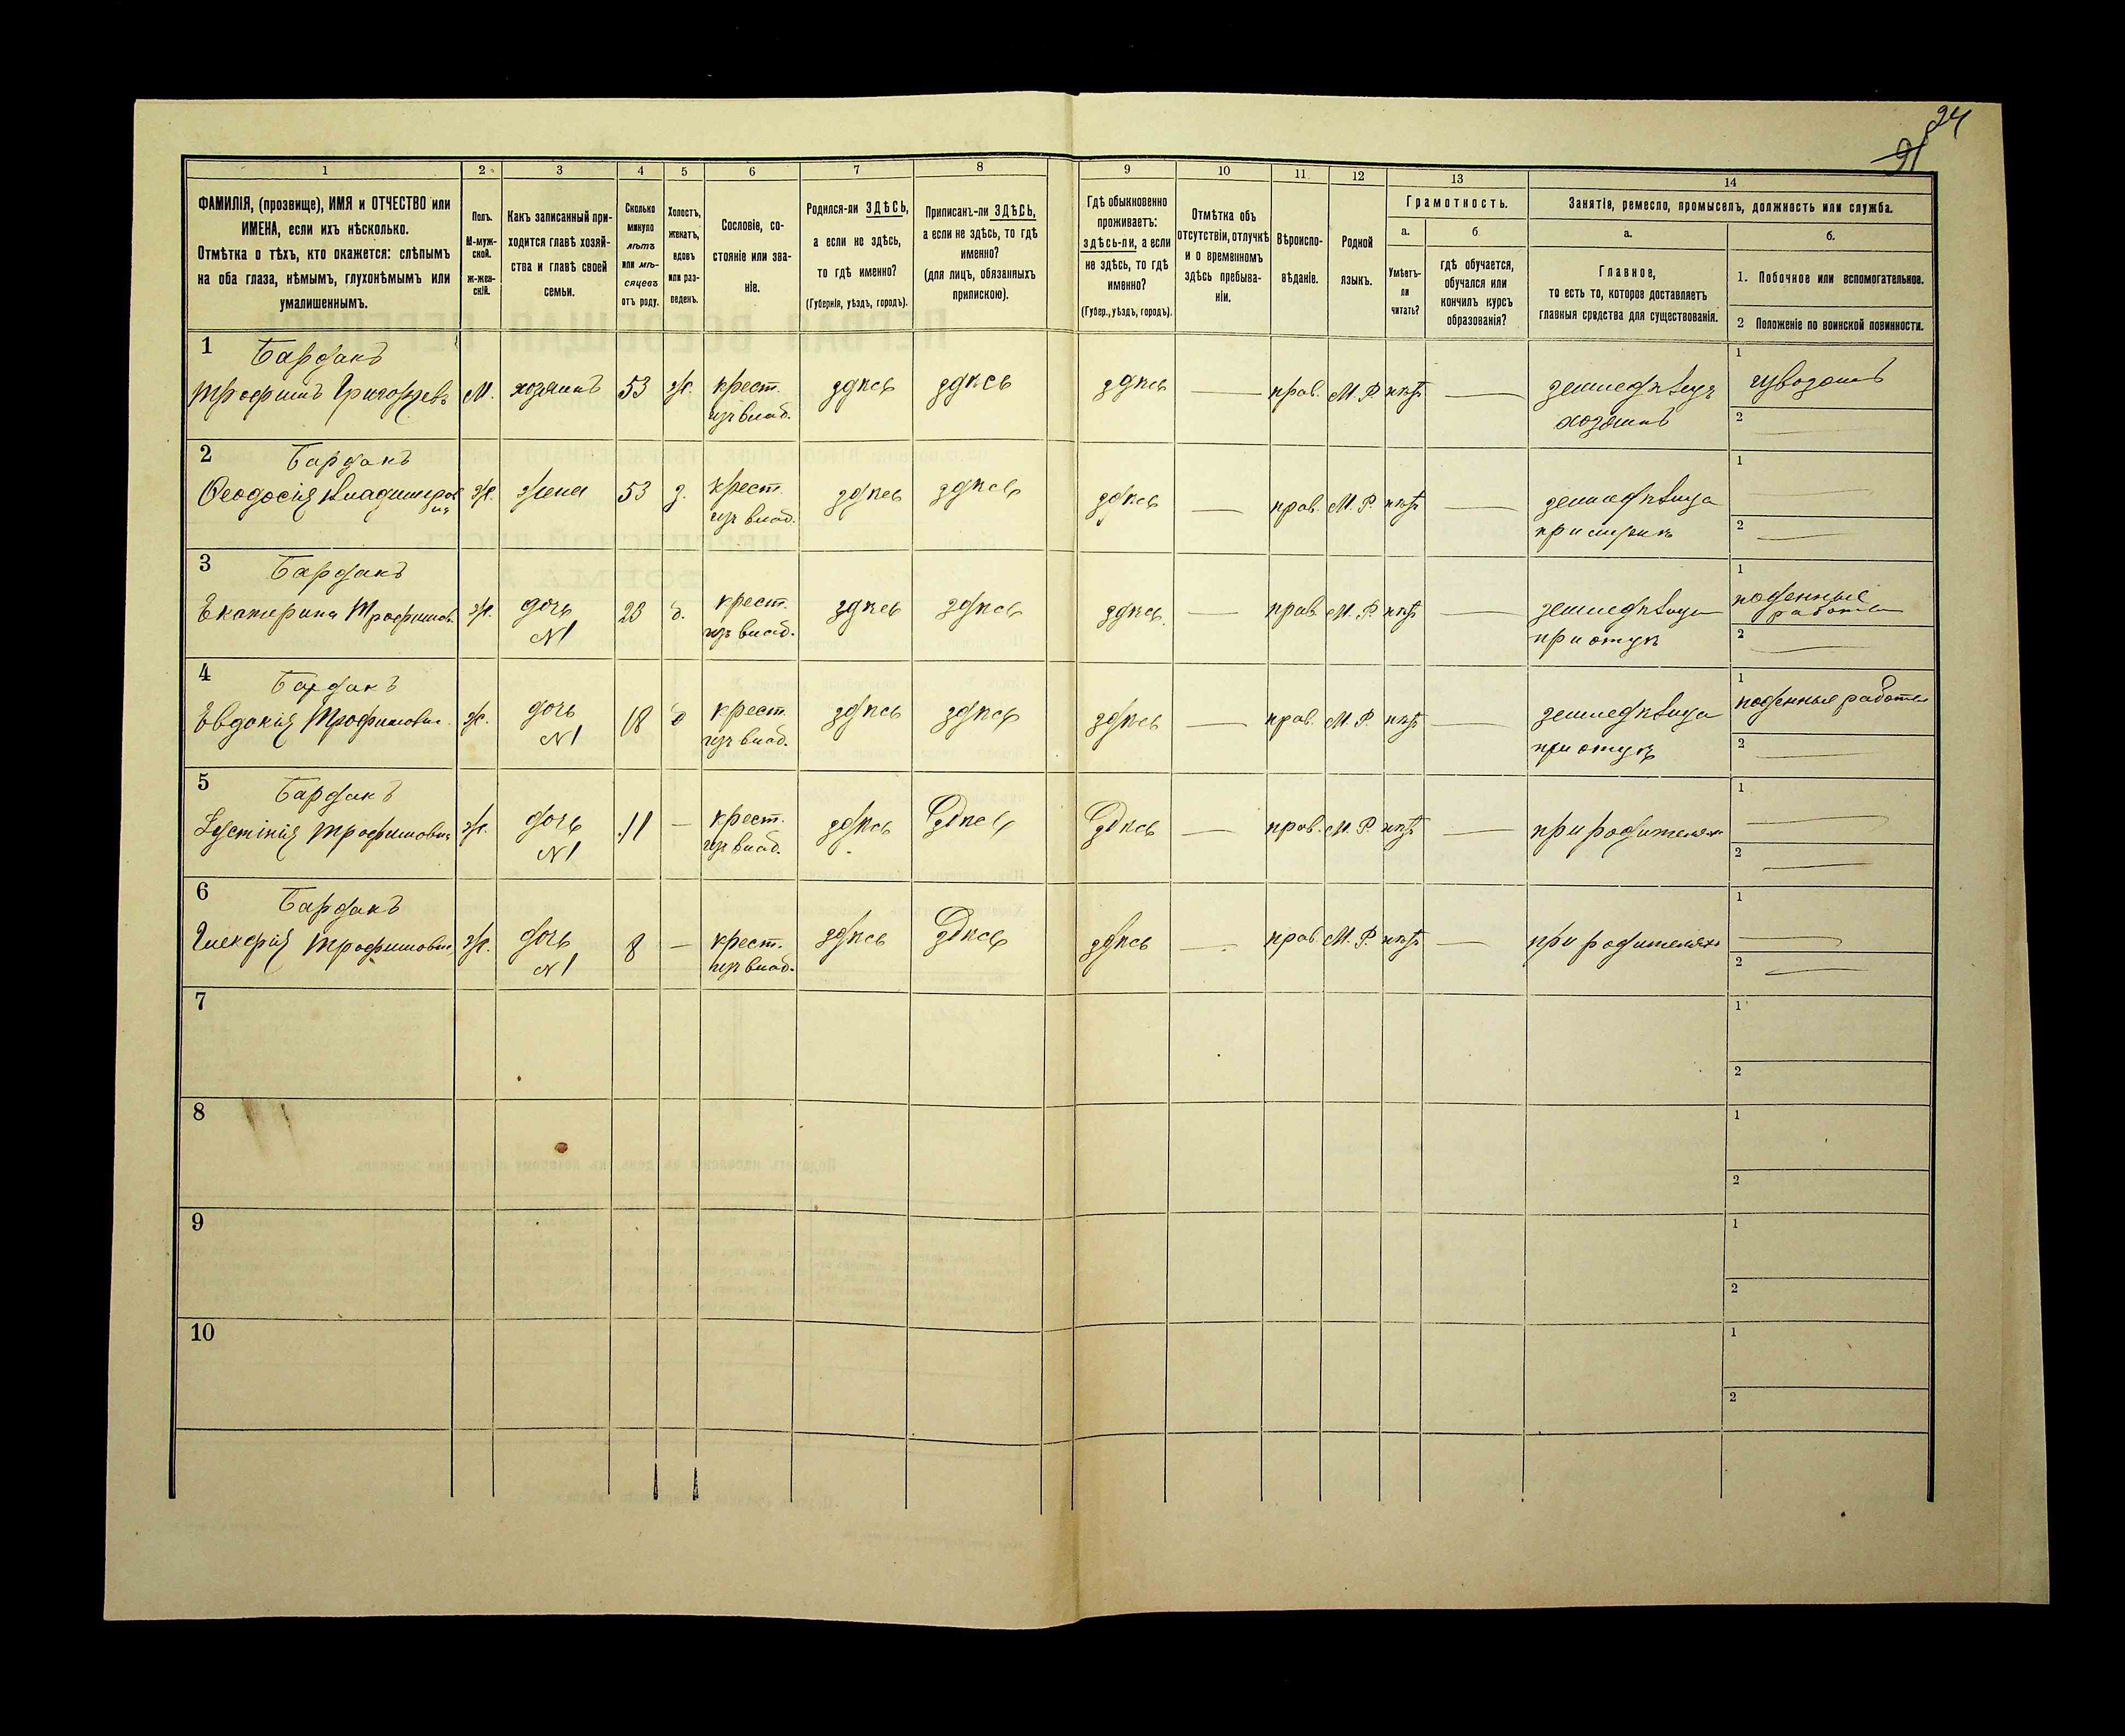 24
91
1
2
3
4
5
6
7
8
9
10
11
12
13
14
ФАМИЛІЯ, (прозвище), ИМЯ и ОТЧЕСТВО или
ИМЕНА, если ихъ нѣсколько.
Отмѣтка о тѣхъ, кто окажется: слѣпымъ
на оба глаза, нѣмымъ, глухонѣмымъ или
умалишеннымъ.
Полъ.
М-муж-
ской.
ж-жен-
скій.
Какъ записанный при-
ходится главѣ хозяй-
ства и главѣ своей
семьи.
Сколько
минуло
лѣтъ
или мѣ-
сяцевъ
отъ роду.
Холостъ,
женатъ,
вдовъ
или раз-
веденъ.
Сословіе, со-
стояніе или зва-
ніе.
Родился-ли ЗДѢСЬ,
а если не здѣсь,
то гдѣ именно?
(Губернія, уѣздъ, городъ).
Приписанъ-ли ЗДѢСЬ,
а если не здѣсь, то гдѣ
именно?
(для лицъ, обязанныхъ
припискою).
Гдѣ обыкновенно
проживаетъ:
здѣсь-ли, а если
не здѣсь, то гдѣ
именно?
(Губер., уѣздъ, городъ).
Отмѣтка объ
отсутствіи, отлучкѣ
и о временномъ
здѣсь пребыва-
ніи.
Вѣроиспо-
вѣданіе.
Родной
языкъ.
Грамотность.
а.
Умѣетъ-
ли
читать?
б
гдѣ обучается,
обучался или
кончилъ курсъ
образованія?
Занятіе, ремесло, промыселъ, должность или служба.
а.
Главное,
то есть то, которое доставляетъ
главныя средства для существованія.
б.
1. Побочное или вспомогательное.
2 Положеніе по воинской повинности.
1
Бардакъ
Трофимъ Григорьевъ
М.
хозяинъ
53
ж.
крест.
изъ влад.
здѣсь
здѣсь
здѣсь
прав.
М. Р.
нѣтъ
земледѣлецъ
хозяинъ
1
извозомъ
2
2
Бардакъ
Ѳеодосія Владимиров
на
ж.
жена
53
з.
крест.
изъ влад.
здѣсь
здѣсь
здѣсь
прав.
М. Р.
нѣтъ
земледѣлица
при мужѣ
1
2
3
Бардакъ
Екатерина Трофимов.
ж.
дочь
N1
23
д.
крест.
изъ влад.
здѣсь
здѣсь
здѣсь
прав.
М. Р.
нѣтъ
земледѣлица
при отцѣ
1
поденные
работы
2
4
Бардакъ
Евдокія Трофимовна
ж.
дочь
N1
18
д
крест.
изъ влад.
здѣсь
здѣсь
здѣсь
прав.
М. Р.
нѣтъ
земледѣлица
при отцѣ
1
поденные работы
2
5
Бардакъ
Іустінія Трофимовна
ж.
дочь
N1
11
крест.
изъ влад.
здѣсь
здѣсь
здѣсь
прав.
М. Р.
нѣтъ
при родителяхъ
1
2
6
Бардакъ
Гликерія Трофимовна
ж.
дочь
N1
8
крест.
изъ влад.
здѣсь
здѣсь
здѣсь
прав.
М. Р.
нѣтъ
при родителяхъ
1
2
7
1
2
8
1
2
9
1
2
10
1
2